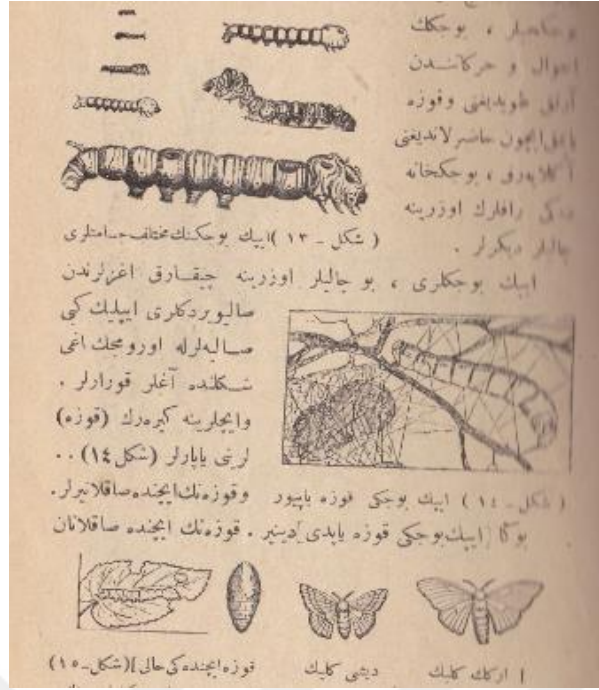 بوجكجیلر ، بوجكك
احوال و حركاتندن
آرتق طویدیغنی وقوزه
یاپمق ایچون حاضرلاندیغنی
آكلایه‌رق ، بوجكخانه
ده‌كی رافلرك اوزرینه
چالیلر دیكرلر .
( شكل ـ ١٣ ) ایپك بوجكنك مختلف جسامتلری
ایپك بوجكلری ، بو چالیلر اوزرینه چیقارق اغزلرندن
صالیویردكلری ایپلیك كبی
صالیه‌لرله اورومجك اغی
شكلنده آغلر قورارلر .
وایچلرینه كیره‌رك (قوزه)
لرنی یاپارلر (شكل ١٤) . .
( شكل ـ ١٤ ) ایپك بوجكی قوزه یاپیور
وقوزه‌نك ایچنده صاقلانیرلر .
بوكا [ایپك بوجكی قوزه یاپدی] دینیر . قوزه‌نك ایچنده صاقلانان
[ اركك كلبك
دیشی كلبك
قوزه ایچنده‌كی حالی ] (شكل ـ ١٥)